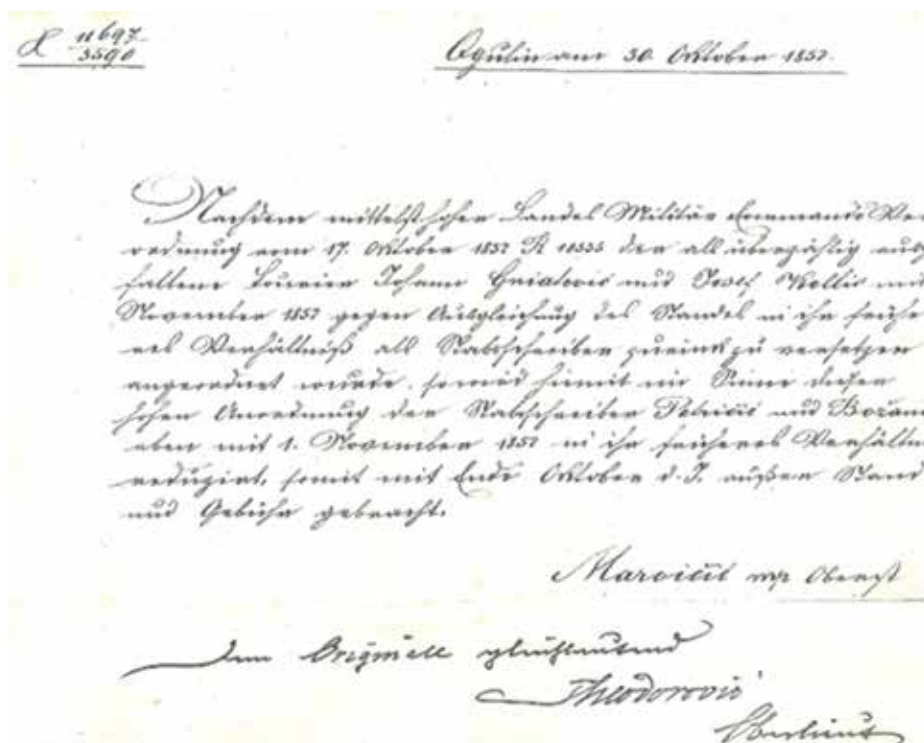 11697
3590
Ogulin am 30. Oktober 1857.
Nachdem mittelst hoher Landes Militär Commando Ver
ordnung vom 17. Oktober 1857 R 10555 der all überzählig aus
fallene Fourier Johann Gniatovic und Josef Kollis mit
November 1857 gegen Ausgleichung des Standes in ihr frühe
res Verhältniß als Stabsschreiber zurück zu versetzen
angeordnet wurde, so wird hiemit im Sinne dieser
hohen Anordnung der Stabsschreiber Petričić und Božano
eben mit 1. November 1857 in ihr früheres Verhältn
reduzirt, somit mit Ende Oktober d. J. außer Stand
und Gebühr gebracht.
Maroičić mp Oberst
Dem Originale gleichlautend
Theodorović
Oberlieut